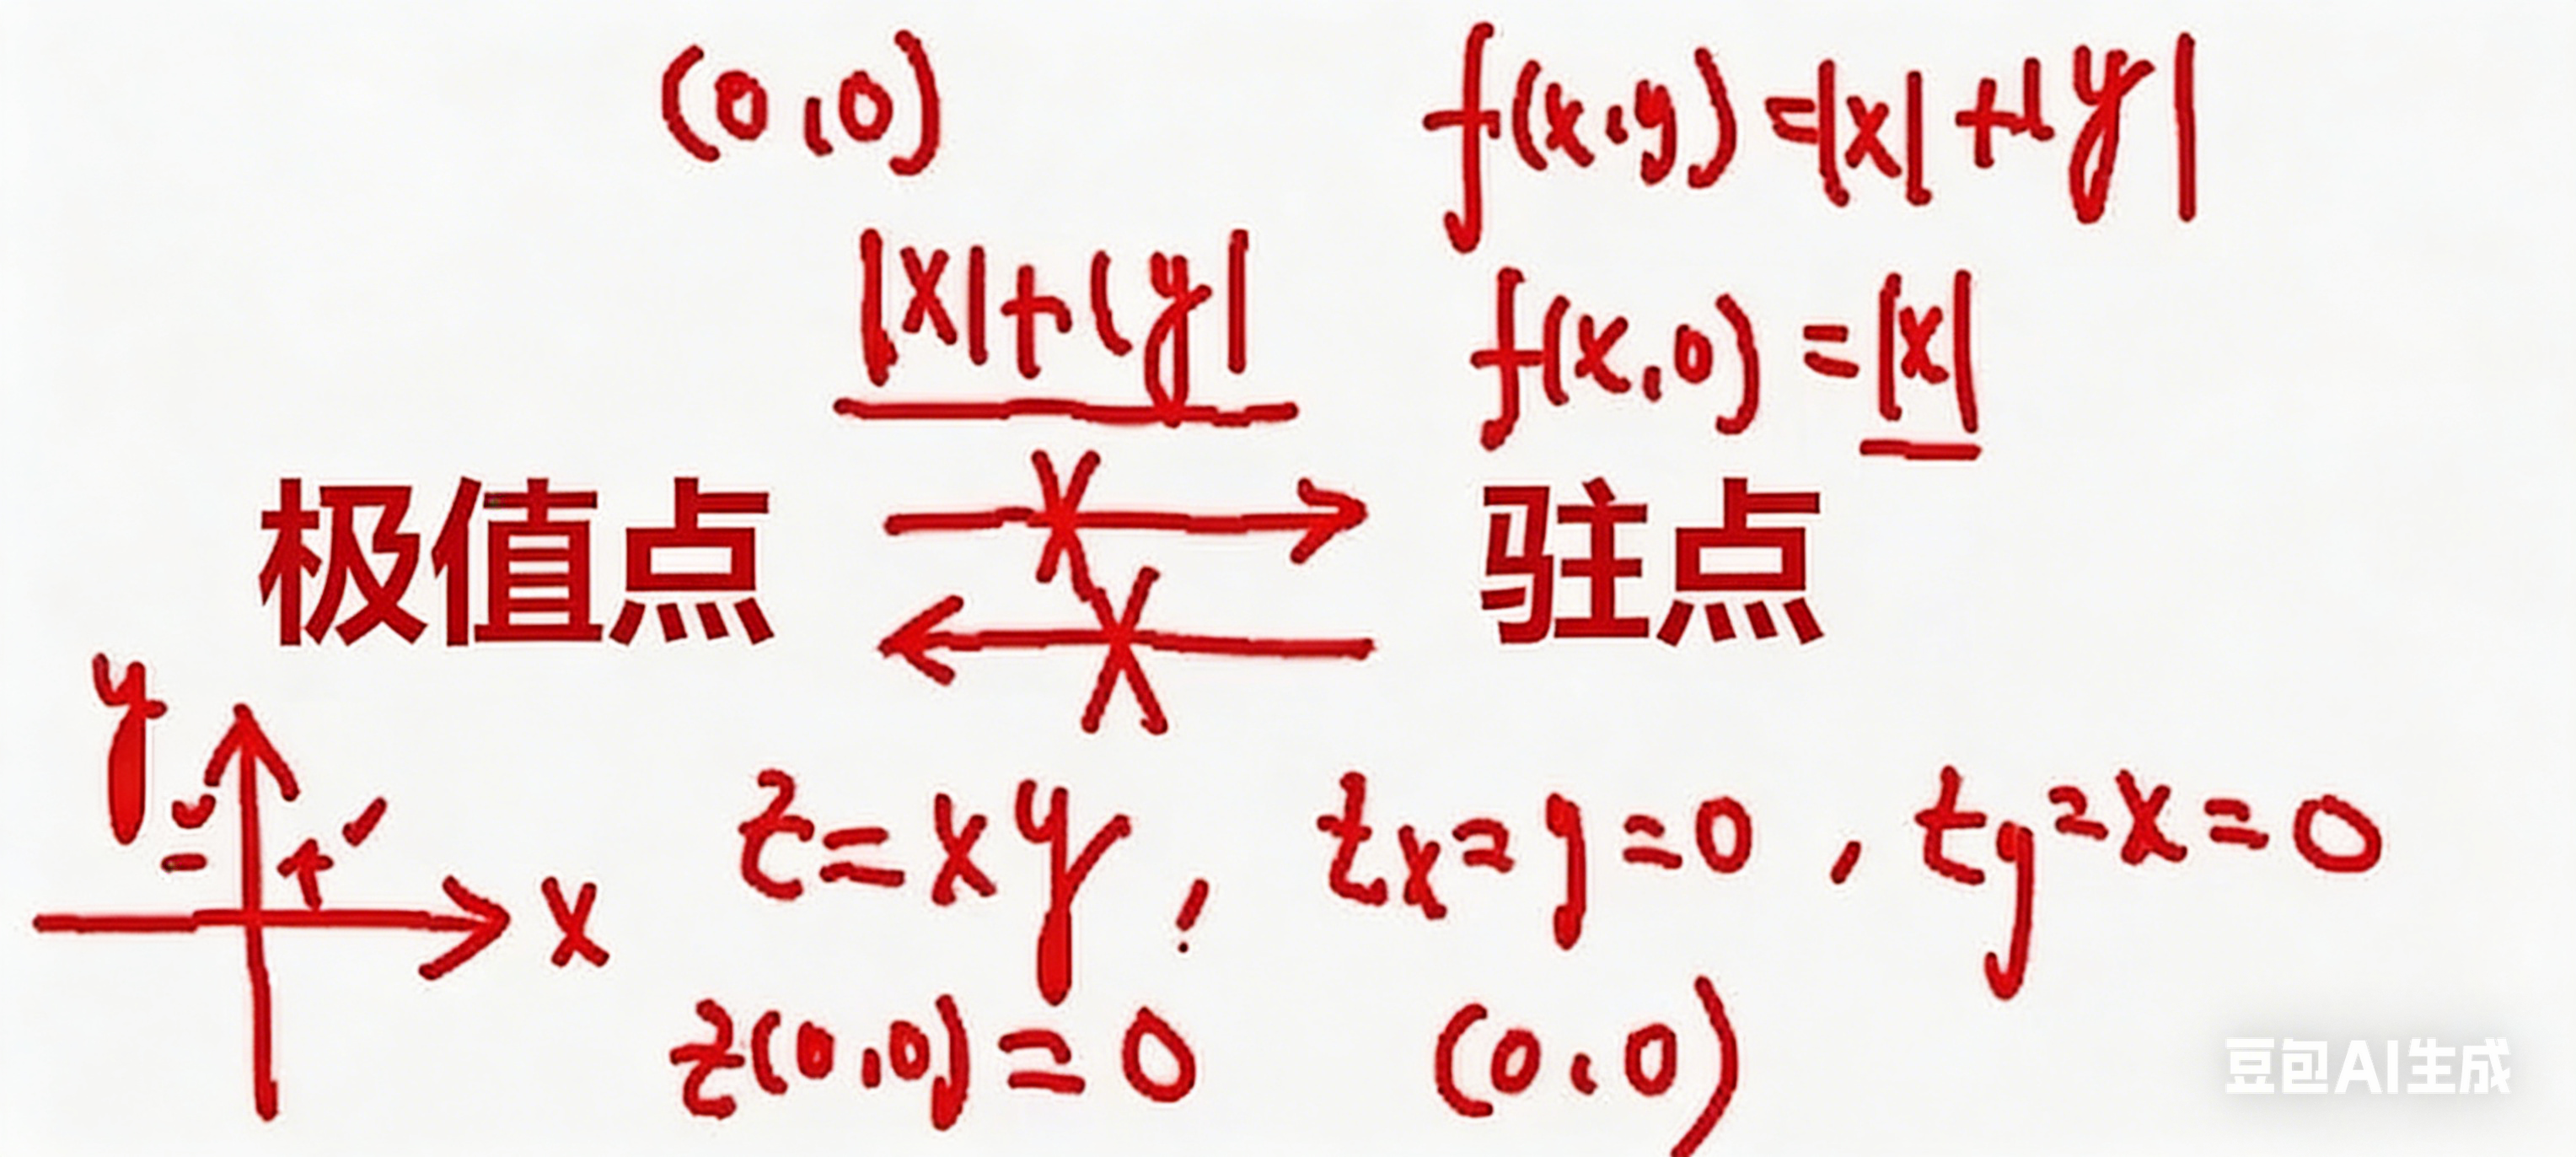 (0,0)
f(x,y)=|x|+|y|
|x|+|y|
f(x,0)=|x|
极值点
驻点
y
- +
x
z=xy, zx=y=0, zy=x=0
z(0,0)=0
(0,0)
豆包AI生成